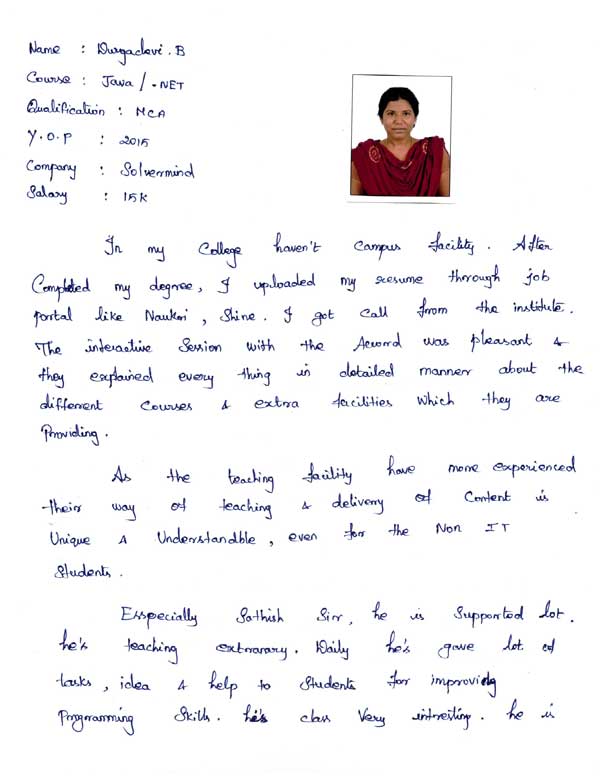 Name : Durgadevi . B
Course : Java / .NET
Qualification : MCA
Y.O.P : 2015
Company : Solvermind
Salary : 15K
In my College haven't Campus facility. After
Completed my degree, I uploaded my resume through job
portal like Naukri, Shine. I got call from the institute.
The interactive Session with the Accord was pleasant &
they explained every thing in detailed manner about the
different Courses & extra facilities which they are
Providing.
As the teaching facility have more experienced
their way of teaching & delivery of Content is
Unique & Understandble, even for the Non IT
Students.
Esspecially Sathish Sir, he is Supported lot.
he's teaching extrarary. Daily he's gave lot of
tasks, idea & help to Students for improving
Programming Skills. he's class Very intresting. he is